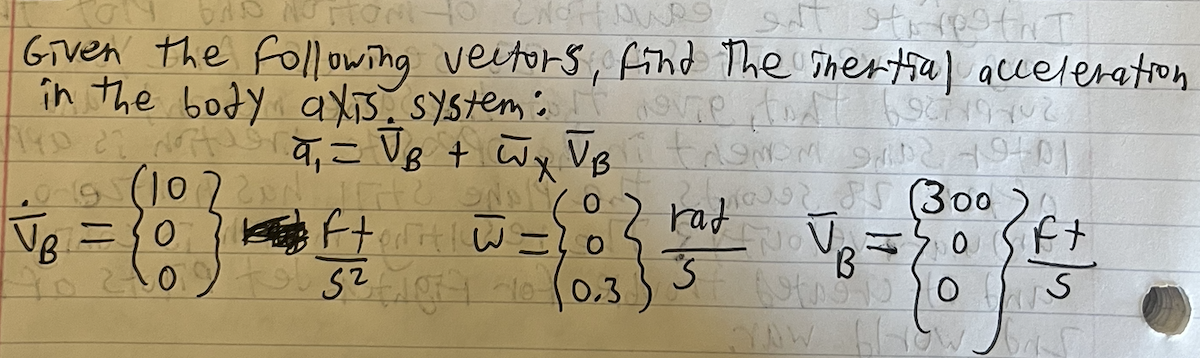 Given the following vectors, find the inertial acceleration
in the body axis system:
a̅₁ = V̅̇_B + ω̅ × V̅_B
V̅̇_B = {10 0 0} ft/s² ω̅ = {0 0 0.3} rad/s V̅_B = {300 0 0} ft/s